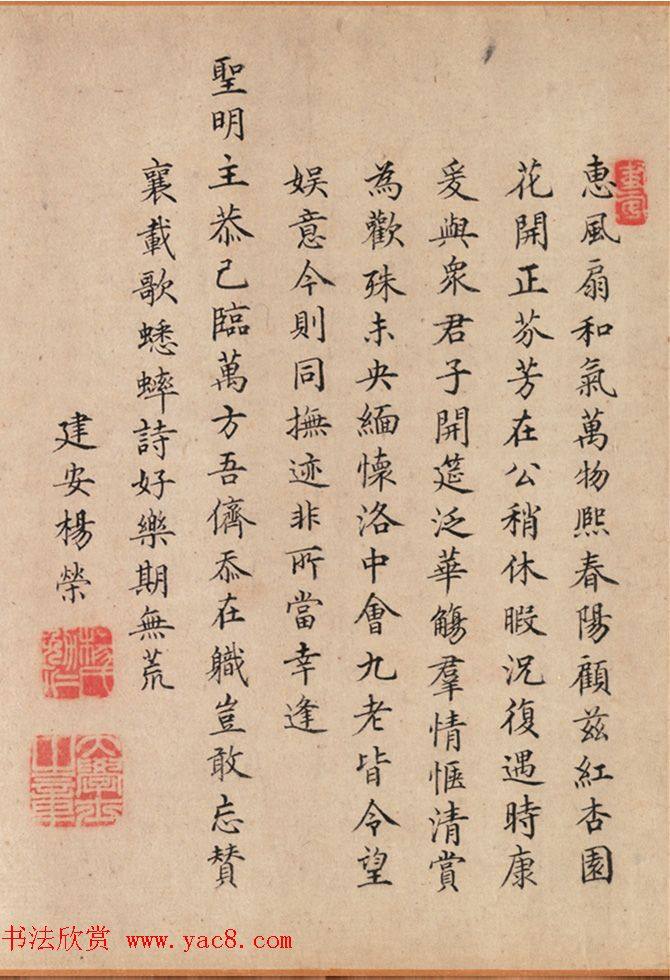 惠風扇和氣萬物熈春陽顧兹紅杏園
花開正芬芳在公稍休暇况復遇時康
爰與衆君子開筵泛華觴羣情愜清賞
為歡殊未央緬懷洛中會九老皆令望
娱意今則同撫迹非所當幸逢
聖明主恭己臨萬方吾儕忝在職豈敢忘賛
襄載歌蟋蟀詩好樂期無荒
建安楊榮
楊氏勉仁
大學士章
书法欣赏 www.yac8.com